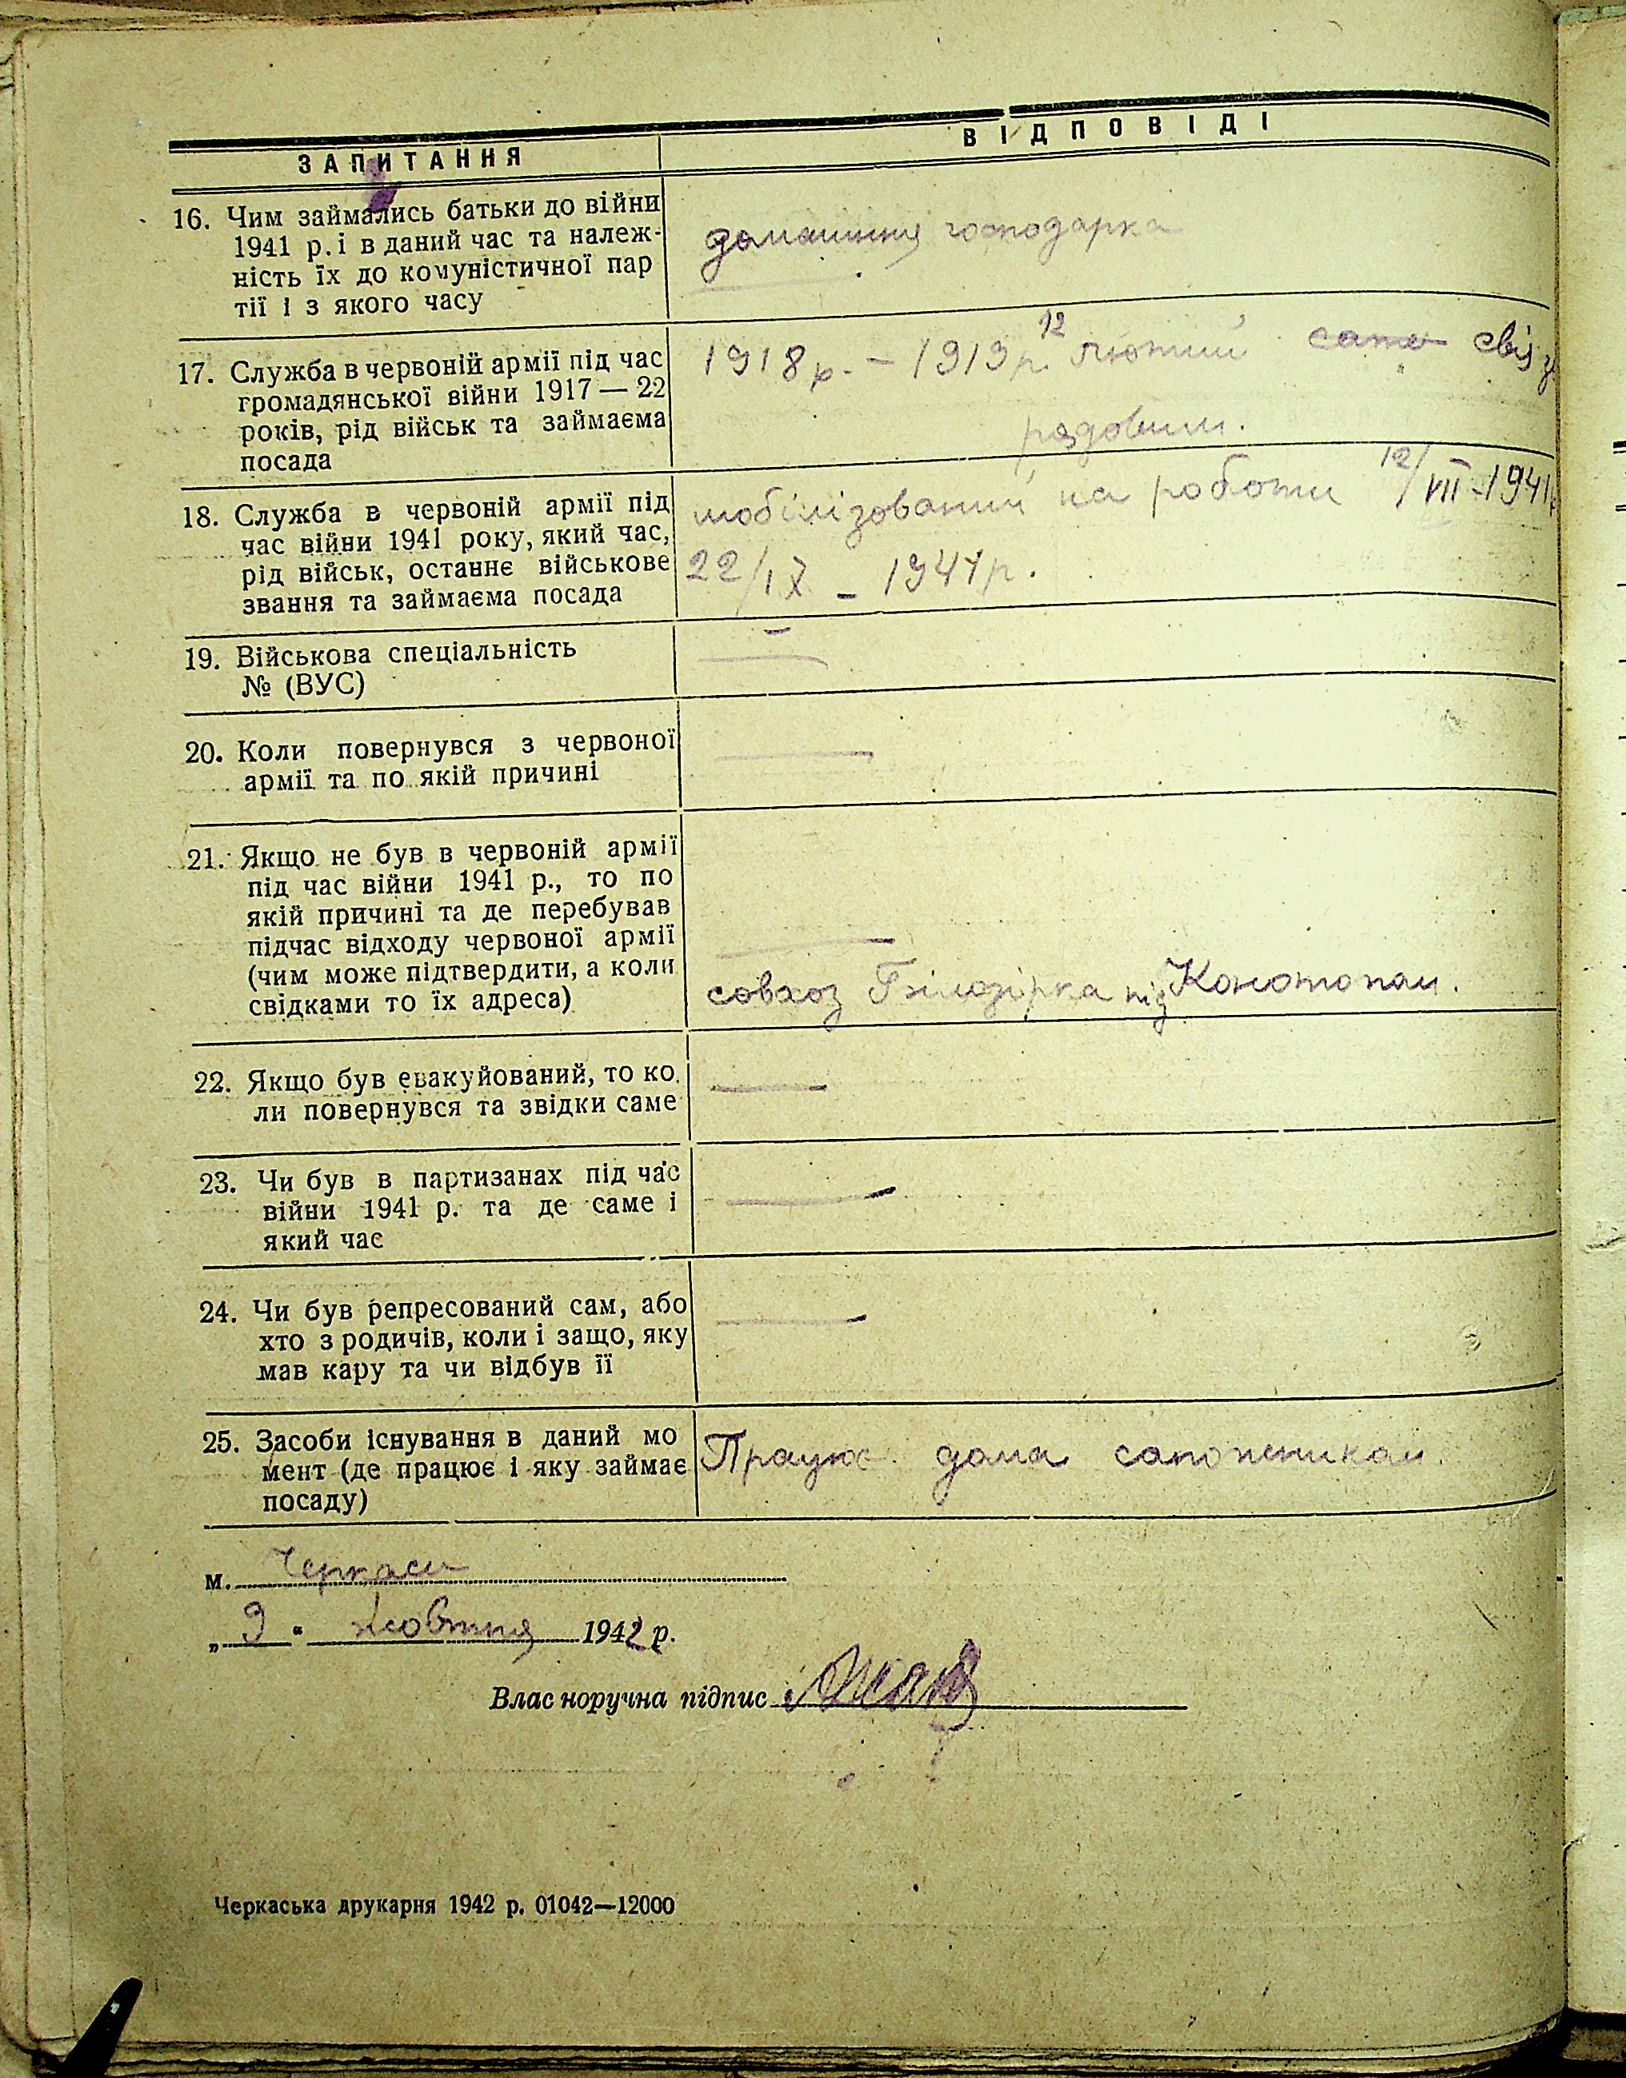 ЗАПИТАННЯ
ВІДПОВІДІ
16. Чим займались батьки до війни
1941 р. і в даний час та належ-
ність їх до комуністичної пар
тії і з якого часу
домашння господарка
17. Служба в червоній армії під час
громадянської війни 1917—22
років, рід військ та займаєма
посада
1918 р. – 1919 р. 12 лютий
рядовим.
18. Служба в червоній армії під
час війни 1941 року, який час,
рід військ, останнє військове
звання та займаєма посада
мобілізований на роботи 12/VII-1941
22/IX – 1941 р.
19. Військова спеціальність
№ (ВУС)
—
20. Коли повернувся з червоної
армії та по якій причині
—
21. Якщо не був в червоній армії
під час війни 1941 р., то по
якій причині та де перебував
підчас відходу червоної армії
(чим може підтвердити, а коли
свідками то їх адреса)
—
совхоз Білозірка під Конотопом.
22. Якщо був евакуйований, то ко.
ли повернувся та звідки саме
—
23. Чи був в партизанах під час
війни 1941 р. та де саме і
який час
—
24. Чи був репресований сам, або
хто з родичів, коли і защо, яку
мав кару та чи відбув її
—
25. Засоби існування в даний мо
мент (де працює і яку займає
посаду)
Працює дома сапожником.
м. Черкаси
„ 9 “ жовтня 1942 р.
Власноручна підпис
Черкаська друкарня 1942 р. 01042—12000